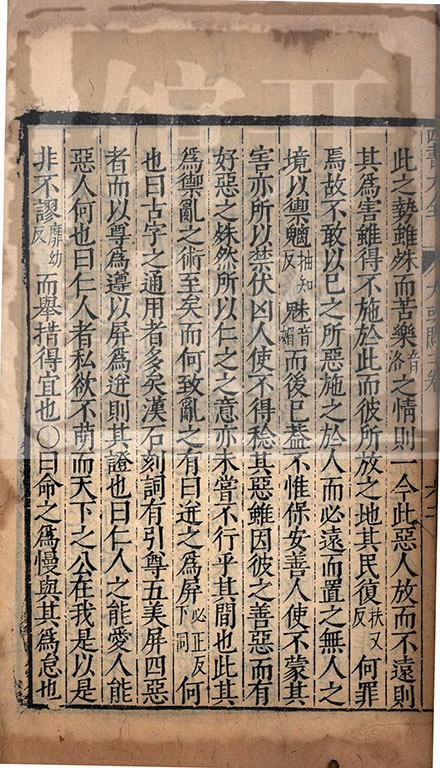 此之勢雖殊而苦樂音洛之情則一今此惡人放而不遠則
其爲害雖得不施於此而彼所放之地其民復扶又反何罪
焉故不敢以己之所惡施之於人而必遠而置之無人之
境以禦魑抽知反魅音媚而後已蓋不惟保安善人使不蒙其
害亦所以禁伏凶人使不得稔其惡雖因彼之善惡而有
好惡之殊然所以仁之之意亦未嘗不行乎其間也此其
爲禦亂之術至矣而何致亂之有曰迸之爲屏必正反下同何
也曰古字之通用者多矣漢石刻詞有引尊五美屏四惡
者而以尊爲遵以屏爲迸則其證也曰仁人之能愛人能
惡人何也曰仁人者私欲不萌而天下之公在我是以是
非不謬靡幼反而舉措得宜也○曰命之爲慢與其爲怠也